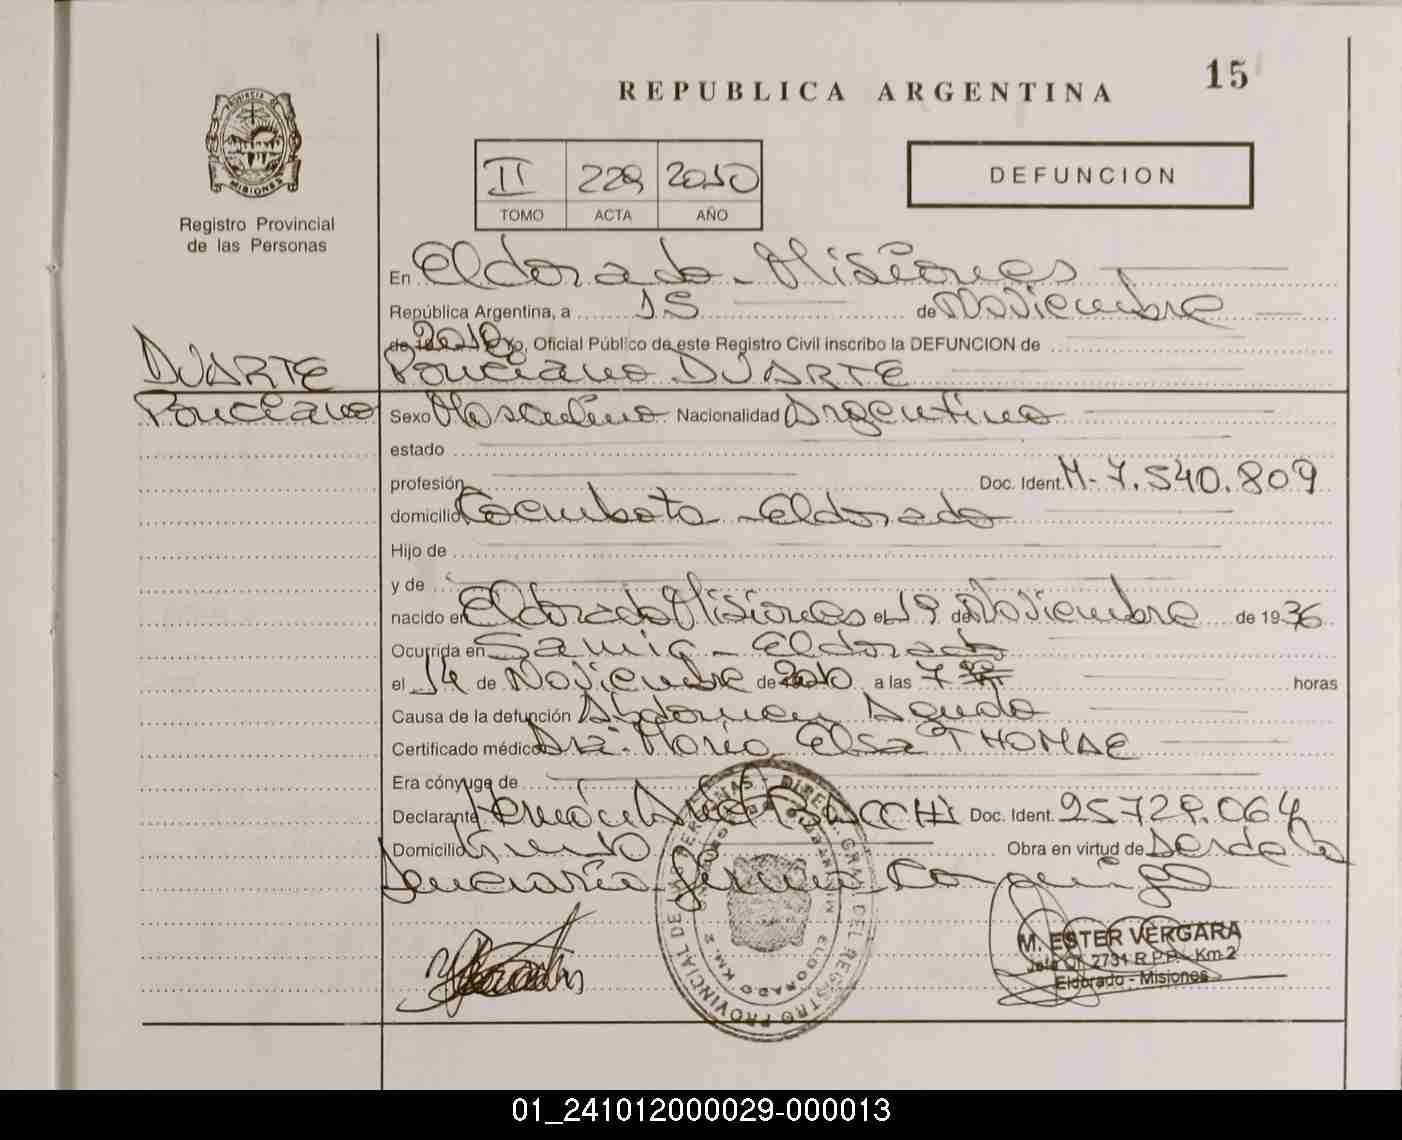 15
REPUBLICA ARGENTINA
PROVINCIA DE
MISIONES
Registro Provincial
de las Personas
II 229 2010
TOMO ACTA AÑO
DEFUNCION
En Eldorado - Misiones
República Argentina, a 15 de Noviembre
de 2010 Yo, Oficial Público de este Registro Civil inscribo la DEFUNCION de
DUARTE Ponciano DUARTE
Ponciano
Sexo Masculino Nacionalidad Argentino
estado
profesión Doc. Ident. M-7.540.809
domicilio - Eldorado
Hijo de
y de
nacido en Eldorado Misiones el 19 de Noviembre de 1936
Ocurrida en Samic - Eldorado
el 14 de Noviembre de 2010 a las 7 horas
Causa de la defunción Abdomen Agudo
Certificado médico Dra. Maria Elsa THOMAE
Era cónyuge de
Declarante Hernán BACCHI Doc. Ident. 25729.064
Domicilio Obra en virtud de
Denuncia
M. ESTER VERGARA
Jefe Of. 2731 R.P.P. - Km 2
Eldorado - Misiones
ELDORADO KM. 2
01_241012000029-000013